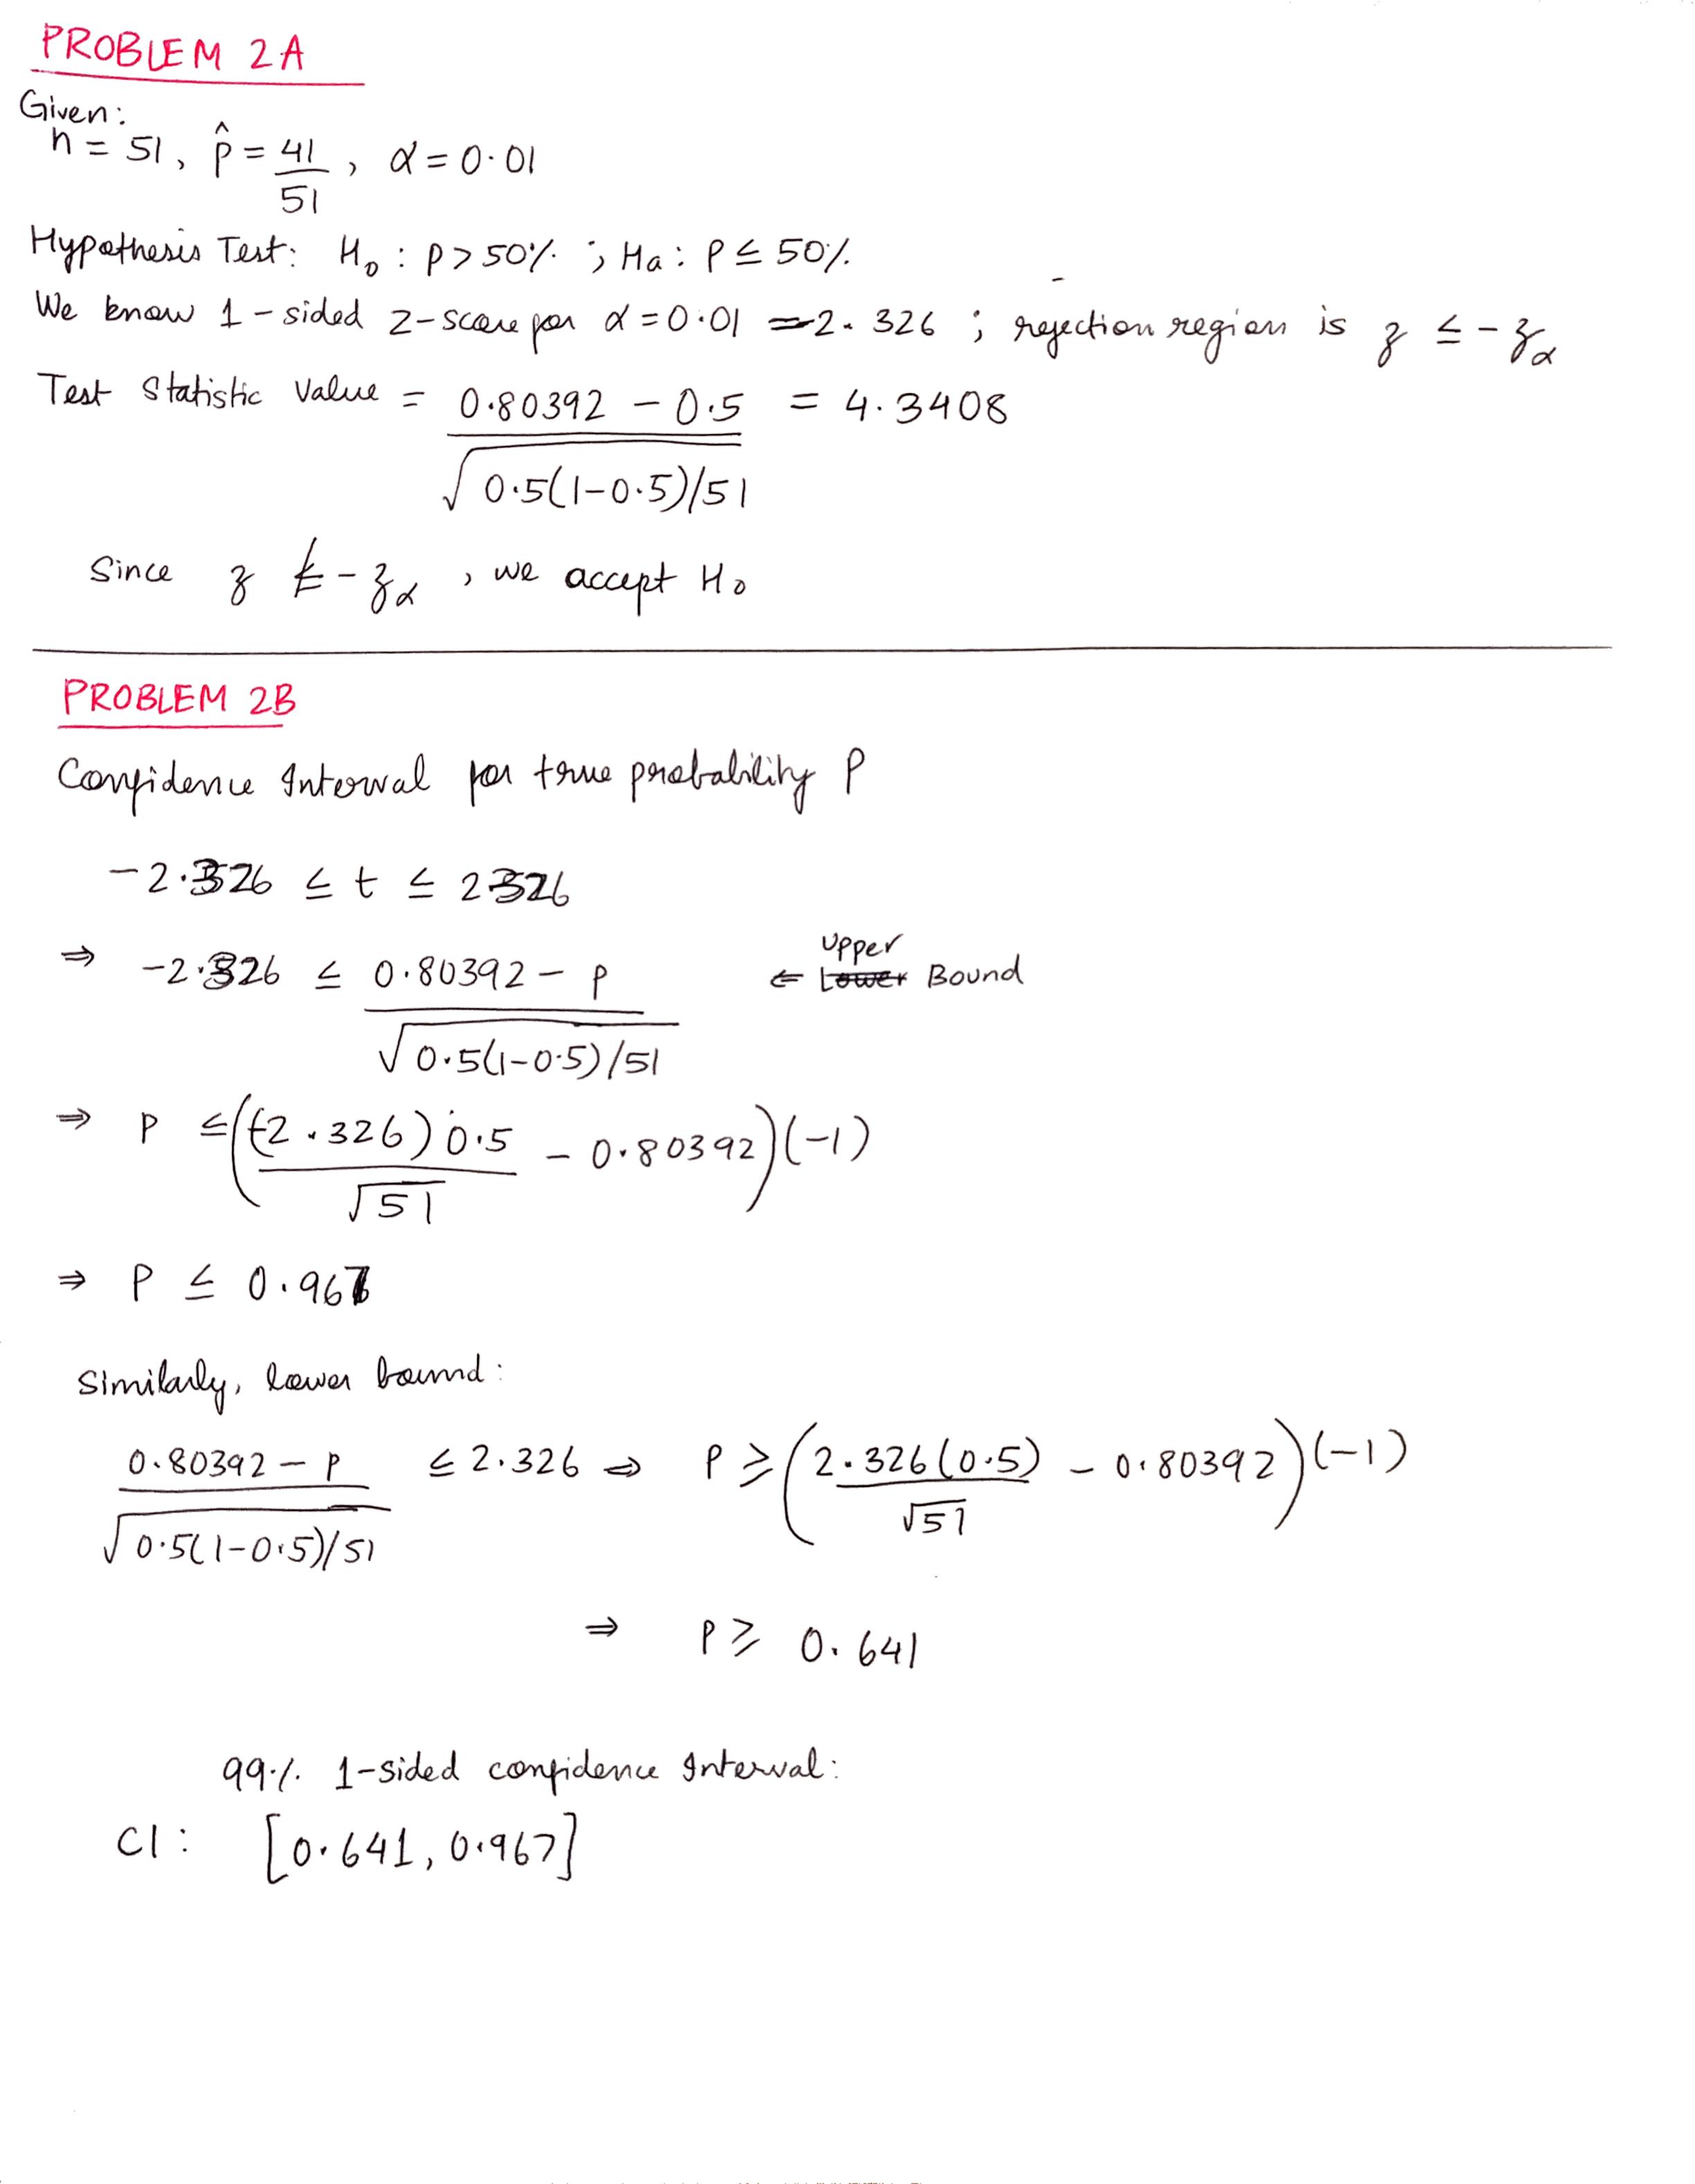 PROBLEM 2A
Given:
n = 51, p̂ = 41/51, α = 0.01
Hypothesis Test: H₀ : p > 50% ; Ha : P ≤ 50%
We know 1-sided z-score for α = 0.01 = 2.326 ; rejection region is z ≤ -zα
Test Statistic Value = (0.80392 - 0.5) / √(0.5(1-0.5)/51) = 4.3408
Since z ≰ -zα , we accept H₀
PROBLEM 2B
Confidence Interval for true probability P
-2.326 ≤ t ≤ 2326
⇒ -2.326 ≤ (0.80392 - p) / √(0.5(1-0.5)/51) ⇐ Upper Lower Bound
⇒ P ≤ ((-2.326) 0.5 / √51 - 0.80392)(-1)
⇒ P ≤ 0.967
Similarly, lower bound:
(0.80392 - p) / √(0.5(1-0.5)/51) ≤ 2.326 ⇒ P ≥ (2.326(0.5) / √51 - 0.80392)(-1)
⇒ P ≥ 0.641
99% 1-sided confidence Interval:
CI: [0.641, 0.967]